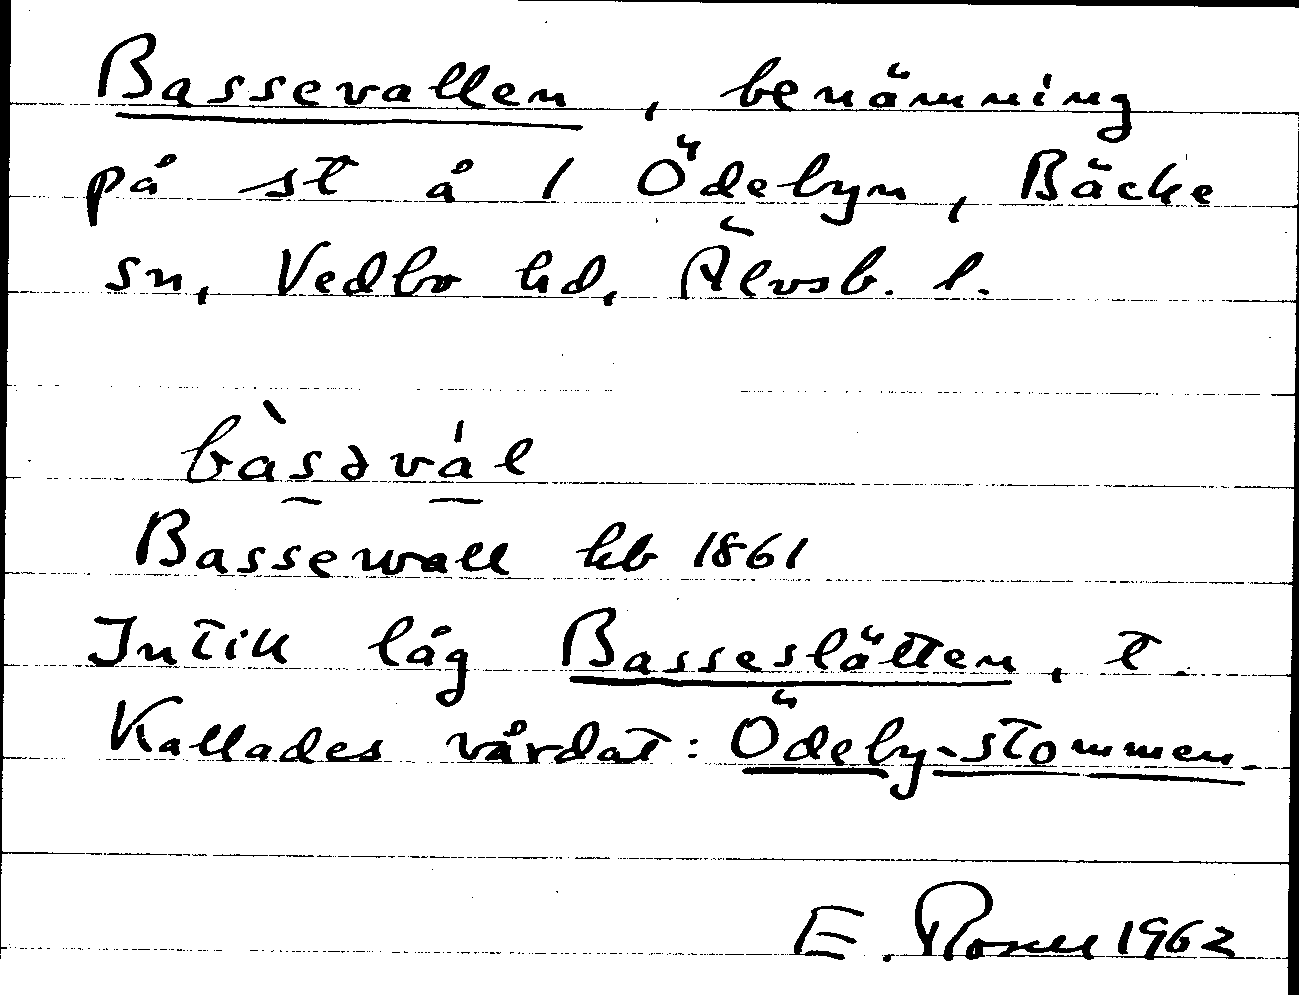 Bassevallen, benämning
på st å 1 Ödebyn, Bäcke
sn, Vedbo hd, Älvsb. l.
bàsəvál
Bassewall hb 1861
Intill låg Basseslätten, t.
Kallades vårdat: Ödeby-stommen.
E. 1962